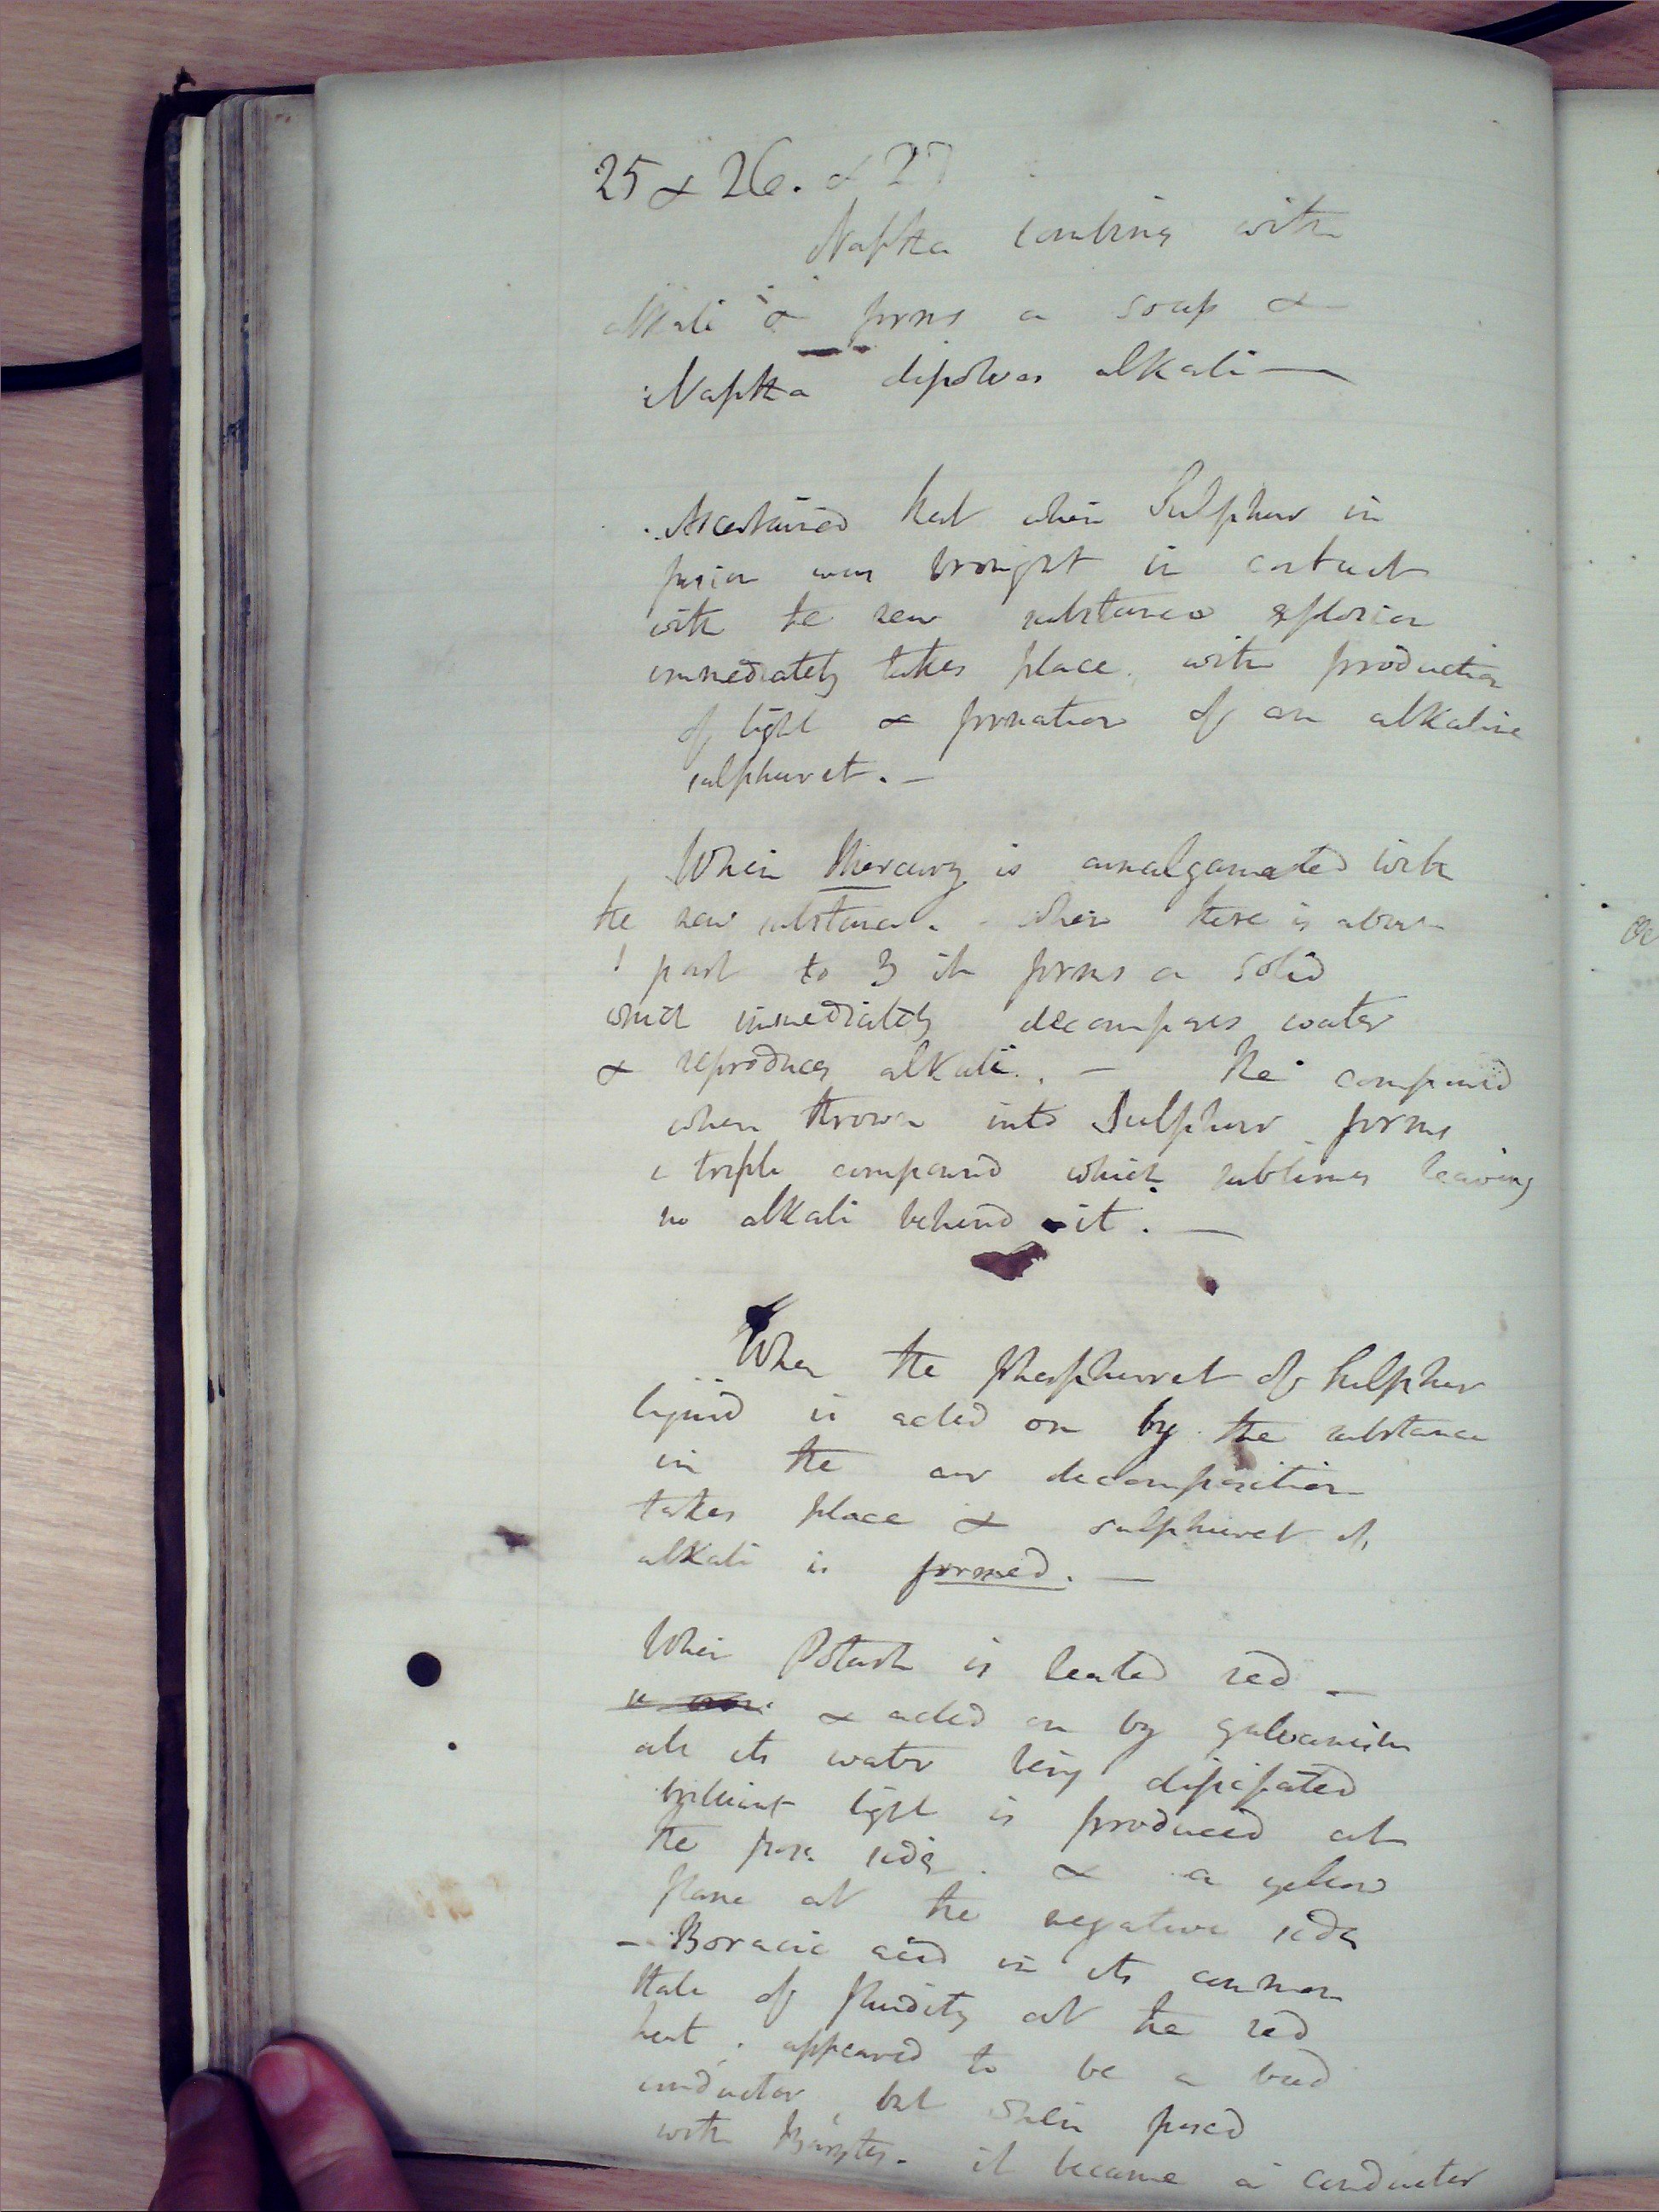 25 & 26. & 27
Naptha combines with
alkali & forms a soap &
Naptha dissolves alkali —
Ascertained that when Sulphur in
fusion was brought in contact
with the new substance explosion
immediately takes place. with production
of light & formation of an alkaline
sulphuret. —
When Mercury is amalgamated with
the new substance. - when there is about
1 part to 3 it forms a solid
which immediately decomposes water
& reproduces alkali. — The compound
when thrown into Sulphur forms
a triple compound which sublimes leaving
no alkali behind it. —
When the phosphuret of Sulphur
liquid is acted on by the substance
in the air decomposition
takes place & sulphuret of
alkali is formed. —
When Potash is heated red —
& acted on by galvanism
all its water being dissipated
brilliant light is produced at
the side. & a yellow
flame at the negative side
— Boracic acid in its common
state of fluidity at the red
heat. appeared to be a bad
conductor, but when fused
with Barytes. it became a conductor